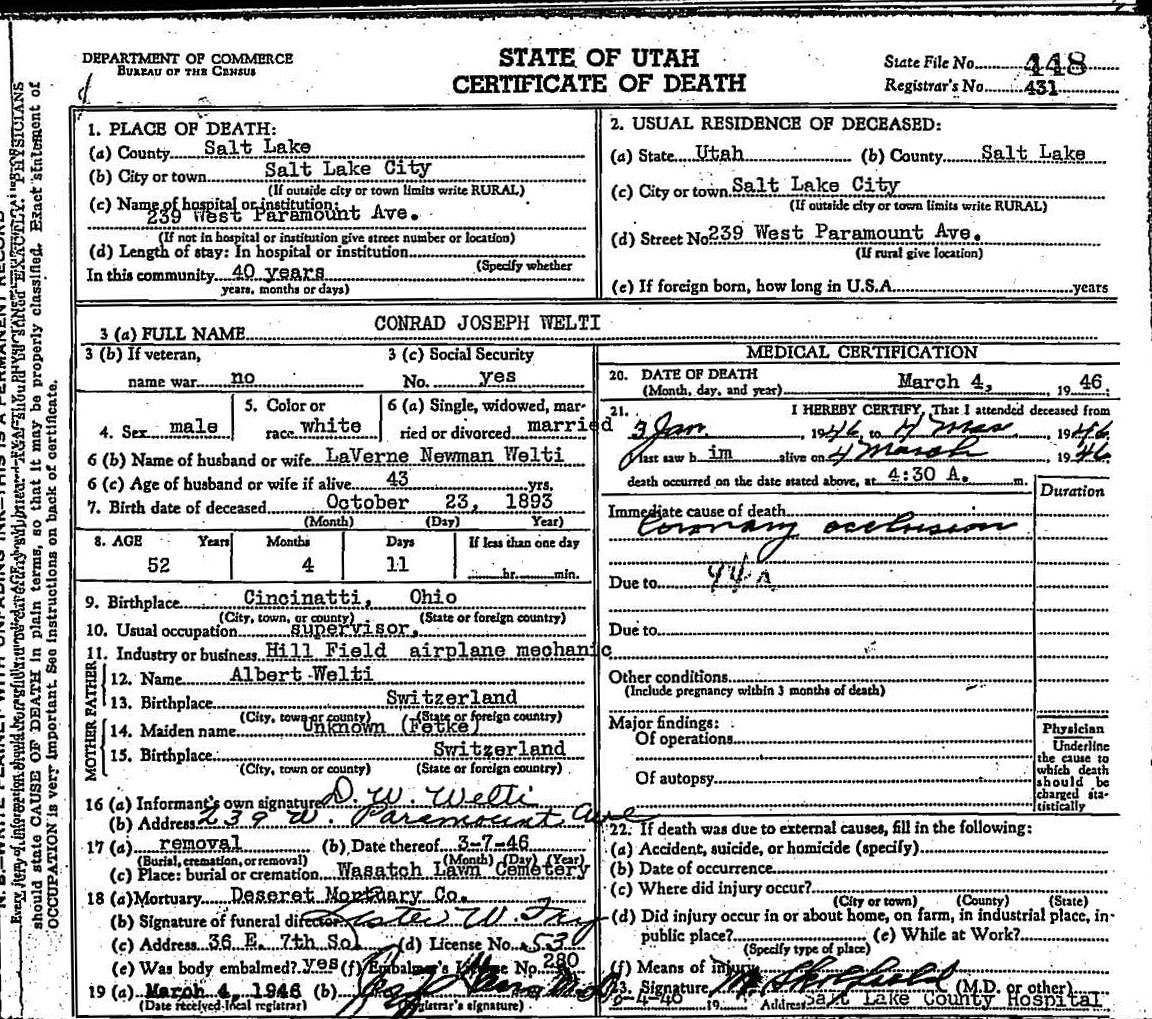 DEPARTMENT OF COMMERCE
BUREAU OF THE CENSUS
STATE OF UTAH
CERTIFICATE OF DEATH
State File No. 448
Registrar's No. 431
1. PLACE OF DEATH:
(a) County Salt Lake
(b) City or town Salt Lake City
(If outside city or town limits write RURAL)
(c) Name of hospital or institution:
239 West Paramount Ave.
(If not in hospital or institution give street number or location)
(d) Length of stay: In hospital or institution
(Specify whether
In this community 40 years
years, months or days)
2. USUAL RESIDENCE OF DECEASED:
(a) State Utah (b) County Salt Lake
(c) City or town Salt Lake City
(If outside city or town limits write RURAL)
(d) Street No 239 West Paramount Ave.
(If rural give location)
(e) If foreign born, how long in U.S.A. years
3 (a) FULL NAME CONRAD JOSEPH WELTI
3 (b) If veteran,
name war no
3 (c) Social Security
No. yes
4. Sex male
5. Color or
race white
6 (a) Single, widowed, mar-
ried or divorced married
6 (b) Name of husband or wife LaVerne Newman Welti
6 (c) Age of husband or wife if alive 43 yrs.
7. Birth date of deceased October 23, 1893
(Month) (Day) Year)
8. AGE Years Months Days If less than one day
52 4 11 hr. min.
9. Birthplace Cincinatti, Ohio
(City, town, or county) (State or foreign country)
10. Usual occupation supervisor,
11. Industry or business Hill Field airplane mechanic
FATHER
12. Name Albert Welti
13. Birthplace Switzerland
(City, town or county) (State or foreign country)
MOTHER
14. Maiden name Unknown (Fetke)
15. Birthplace Switzerland
(City, town or county) (State or foreign country)
16 (a) Informant's own signature D. W. Welti
(b) Address 239 W. Paramount Ave
17 (a) removal (b) Date thereof 3-7-46
(Burial, cremation, or removal) (Month) (Day) (Year)
(c) Place: burial or cremation Wasatch Lawn Cemetery
18 (a) Mortuary Deseret Mortuary Co.
(b) Signature of funeral director
(c) Address 36 E. 7th So. (d) License No. 530
(e) Was body embalmed? yes (f) Embalmer's License No. 280
19 (a) March 4, 1946 (b)
(Date received local registrar) (Registrar's signature)
MEDICAL CERTIFICATION
20. DATE OF DEATH
(Month, day, and year) March 4, 19 46.
21. I HEREBY CERTIFY, That I attended deceased from
3 Jan. , 1946 to 4 Mar , 1946
I last saw h im alive on 4 March , 1946
death occurred on the date stated above, at 4:30 A. m.
Duration
Immediate cause of death
Coronary occlusion
Due to 94A
Due to
Other conditions
(Include pregnancy within 3 months of death)
Major findings:
Of operations
Of autopsy
Physician
Underline
the cause to
which death
should be
charged sta-
tistically
22. If death was due to external causes, fill in the following:
(a) Accident, suicide, or homicide (specify)
(b) Date of occurrence
(c) Where did injury occur?
(City or town) (County) (State)
(d) Did injury occur in or about home, on farm, in industrial place, in-
public place? (e) While at Work?
(Specify type of place)
(f) Means of injury
23. Signature (M.D. or other)
19 Address Salt Lake County Hospital
should state CAUSE OF DEATH in plain terms, so that it may be properly classified. Exact statement of
OCCUPATION is very important. See instructions on back of certificate.